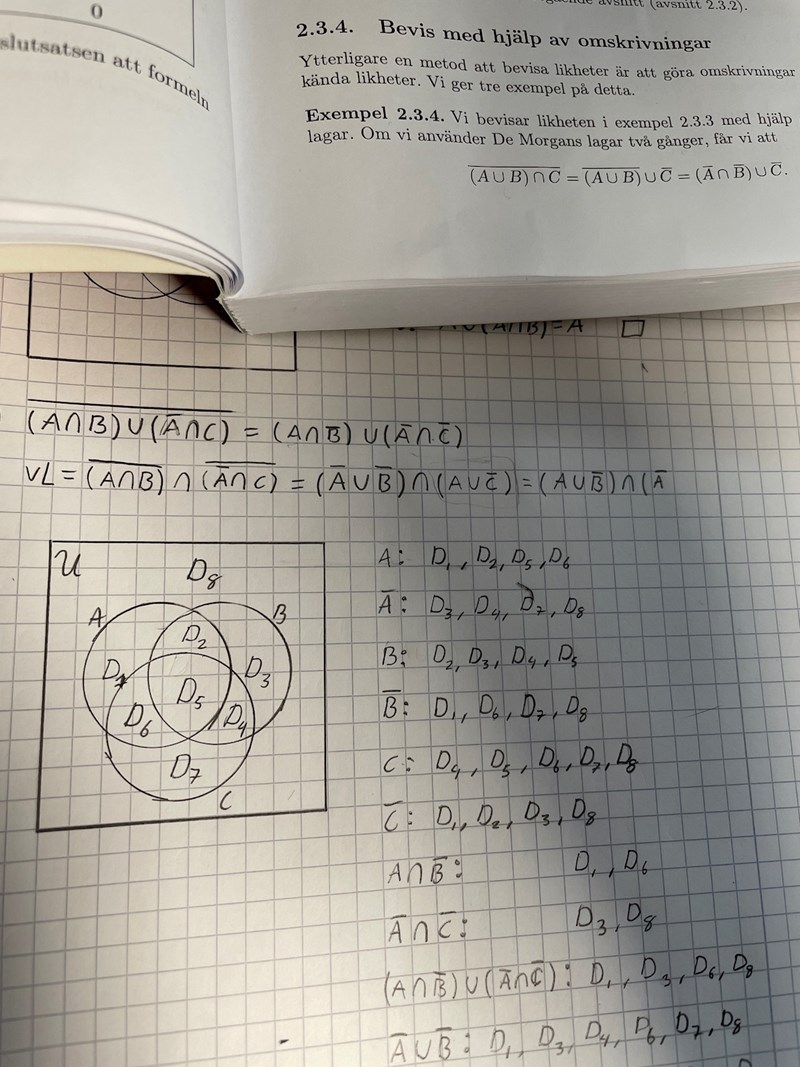 0
slutsatsen att formeln
avsnitt (avsnitt 2.3.2).
2.3.4. Bevis med hjälp av omskrivningar
Ytterligare en metod att bevisa likheter är att göra omskrivningar
kända likheter. Vi ger tre exempel på detta.
Exempel 2.3.4. Vi bevisar likheten i exempel 2.3.3 med hjälp
lagar. Om vi använder De Morgans lagar två gånger, får vi att
$\overline{(A \cup B) \cap C} = \overline{(A \cup B)} \cup \overline{C} = (\overline{A} \cap \overline{B}) \cup \overline{C}.$
∪(A∩B)=A □
$\overline{(A \cap B) \cup (\overline{A} \cap C)} = (A \cap \overline{B}) \cup (\overline{A} \cap \overline{C})$
$VL = \overline{(A \cap B)} \cap \overline{(\overline{A} \cap C)} = (\overline{A} \cup \overline{B}) \cap (A \cup \overline{C}) = (A \cup \overline{B}) \cap (\overline{A}$
U
D₈
A
B
D₂
D₁
D₃
D₅
D₆
D₄
D₇
C
A: D₁, D₂, D₅, D₆
A̅: D₃, D₄, D₇, D₈
B: D₂, D₃, D₄, D₅
B̅: D₁, D₆, D₇, D₈
C: D₄, D₅, D₆, D₇, D₈
C̅: D₁, D₂, D₃, D₈
A∩B̅: D₁, D₆
A̅∩C̅: D₃, D₈
(A∩B̅)∪(A̅∩C̅): D₁, D₃, D₆, D₈
A̅∪B̅: D₁, D₃, D₄, D₆, D₇, D₈